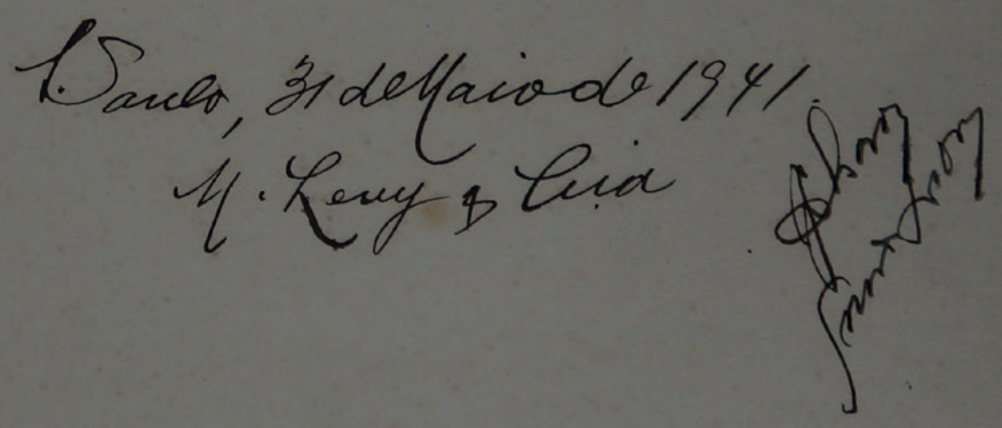 S. Paulo, 31 de Maio de 1941.
M. Levy & Cia